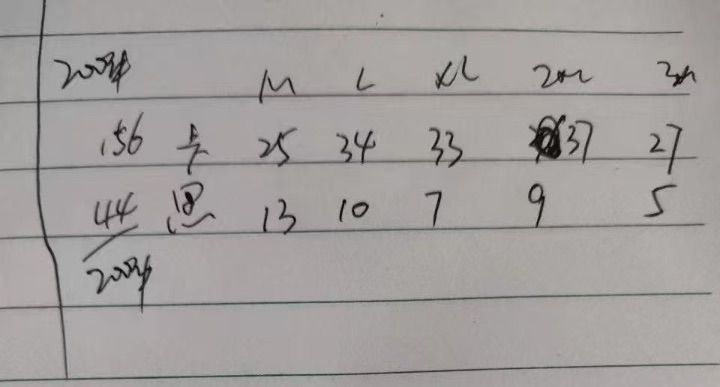 200件 M L XL 2XL 3XL
156 卡 25 34 33 37 27
44 黑 13 10 7 9 5
200件